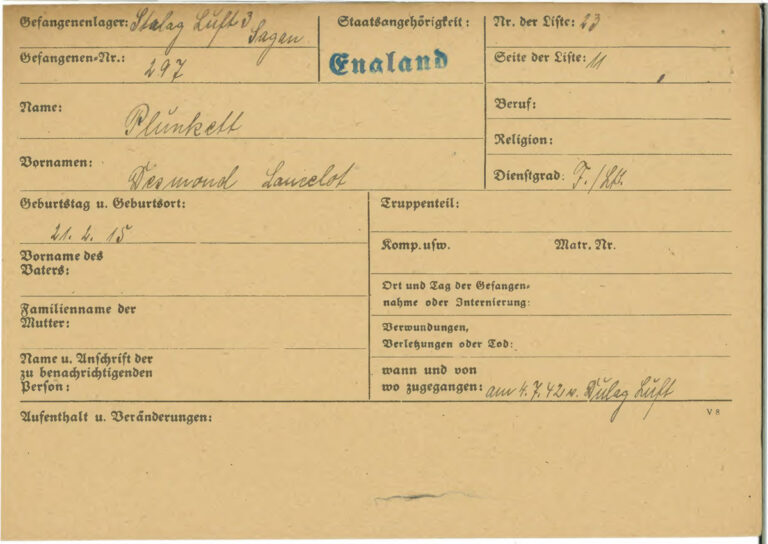 Gefangenenlager: Stalag Luft 3 Sagan
Staatsangehörigkeit:
Nr. der Liste: 23
Gefangenen-Nr.: 297
England
Seite der Liste: 11
Name: Plunkett
Beruf:
Religion:
Vornamen: Desmond Lancelot
Dienstgrad: F./Ltt.
Geburtstag u. Geburtsort:
21. 2. 15
Truppenteil:
Vorname des
Vaters:
Komp. usw. Matr. Nr.
Ort und Tag der Gefangen-
nahme oder Internierung:
Familienname der
Mutter:
Verwundungen,
Verletzungen oder Tod:
Name u. Anschrift der
zu benachrichtigenden
Person:
wann und von
wo zugegangen: am 4.7.42 v. Dulag Luft
Aufenthalt u. Veränderungen:
V 8